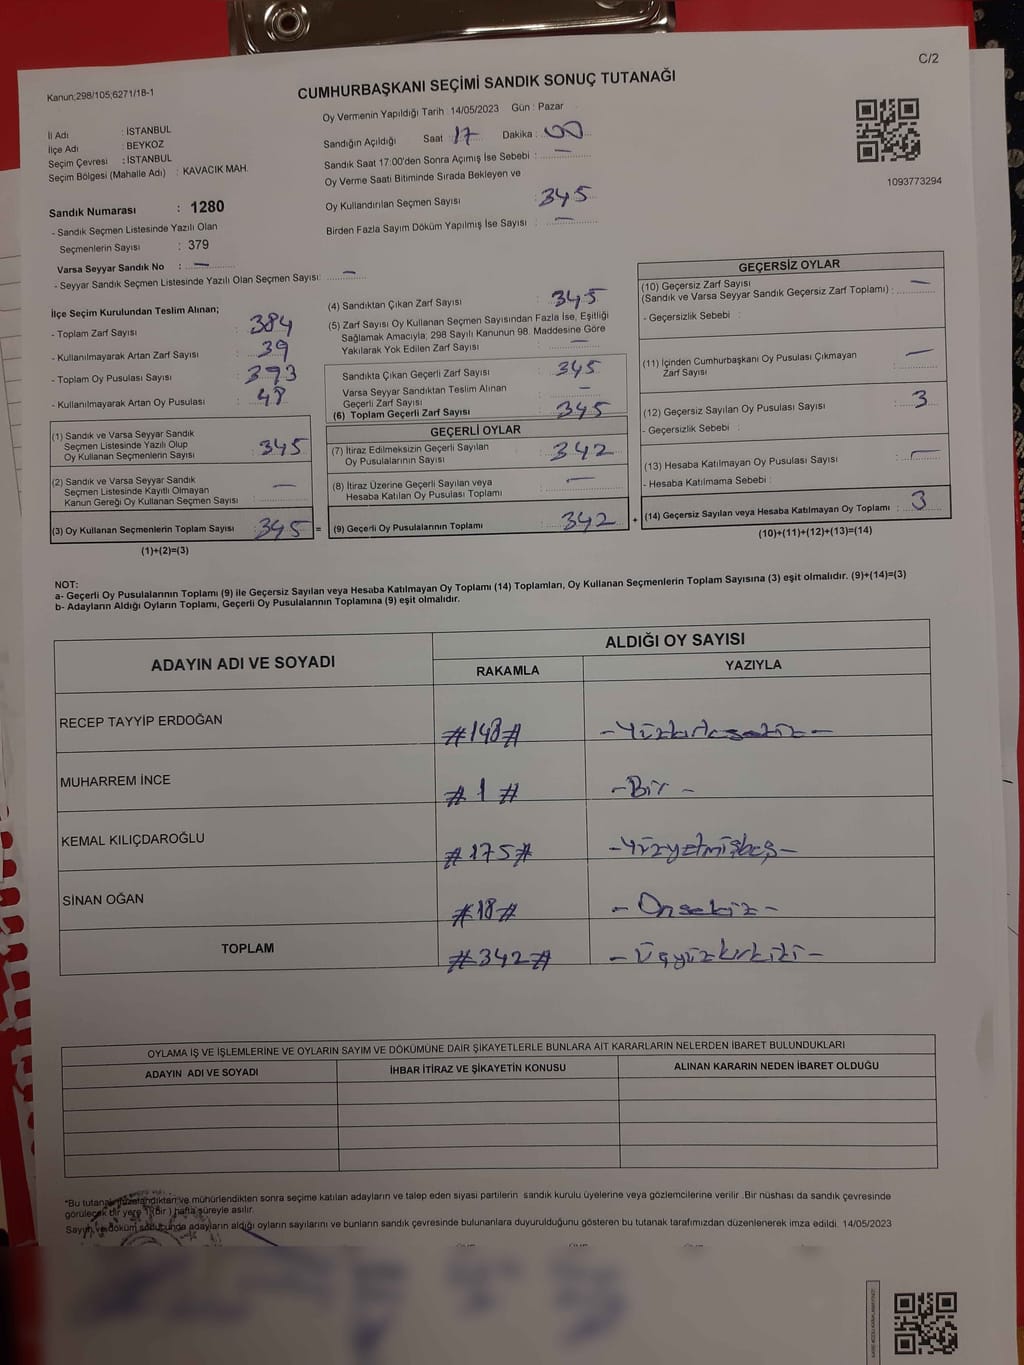 C/2
Kanun;298/105;6271/18-1
CUMHURBAŞKANI SEÇİMİ SANDIK SONUÇ TUTANAĞI
Oy Vermenin Yapıldığı Tarih :14/05/2023 Gün : Pazar
İl Adı : İSTANBUL
İlçe Adı : BEYKOZ
Seçim Çevresi : İSTANBUL
Seçim Bölgesi (Mahalle Adı) : KAVACIK MAH.
Sandığın Açıldığı Saat : 17 Dakika : 00
Sandık Saat 17:00'den Sonra Açımış İse Sebebi : —
Oy Verme Saati Bitiminde Sırada Bekleyen ve
Oy Kullandırılan Seçmen Sayısı : 345
Birden Fazla Sayım Döküm Yapılmış İse Sayısı : —
1093773294
Sandık Numarası : 1280
- Sandık Seçmen Listesinde Yazılı Olan
Seçmenlerin Sayısı : 379
Varsa Seyyar Sandık No : —
- Seyyar Sandık Seçmen Listesinde Yazılı Olan Seçmen Sayısı: —
İlçe Seçim Kurulundan Teslim Alınan;
- Toplam Zarf Sayısı : 384
- Kullanılmayarak Artan Zarf Sayısı : 39
- Toplam Oy Pusulası Sayısı : 393
- Kullanılmayarak Artan Oy Pusulası : 48
(1) Sandık ve Varsa Seyyar Sandık
Seçmen Listesinde Yazılı Olup
Oy Kullanan Seçmenlerin Sayısı : 345
(2) Sandık ve Varsa Seyyar Sandık
Seçmen Listesinde Kayıtlı Olmayan
Kanun Gereği Oy Kullanan Seçmen Sayısı : —
(3) Oy Kullanan Seçmenlerin Toplam Sayısı : 345 =
(1)+(2)=(3)
(4) Sandıktan Çıkan Zarf Sayısı : 345
(5) Zarf Sayısı Oy Kullanan Seçmen Sayısından Fazla İse, Eşitliği
Sağlamak Amacıyla; 298 Sayılı Kanunun 98. Maddesine Göre
Yakılarak Yok Edilen Zarf Sayısı : —
Sandıkta Çıkan Geçerli Zarf Sayısı : 345
Varsa Seyyar Sandıktan Teslim Alınan
Geçerli Zarf Sayısı : —
(6) Toplam Geçerli Zarf Sayısı : 345
GEÇERLİ OYLAR
(7) İtiraz Edilmeksizin Geçerli Sayılan
Oy Pusulalarının Sayısı : 342
(8) İtiraz Üzerine Geçerli Sayılan veya
Hesaba Katılan Oy Pusulası Toplamı : —
(9) Geçerli Oy Pusulalarının Toplamı : 342 +
GEÇERSİZ OYLAR
(10) Geçersiz Zarf Sayısı
(Sandık ve Varsa Seyyar Sandık Geçersiz Zarf Toplamı) : —
- Geçersizlik Sebebi :
(11) İçinden Cumhurbaşkanı Oy Pusulası Çıkmayan
Zarf Sayısı : —
(12) Geçersiz Sayılan Oy Pusulası Sayısı : 3
- Geçersizlik Sebebi :
(13) Hesaba Katılmayan Oy Pusulası Sayısı : —
- Hesaba Katılmama Sebebi :
(14) Geçersiz Sayılan veya Hesaba Katılmayan Oy Toplamı : 3
(10)+(11)+(12)+(13)=(14)
NOT:
a- Geçerli Oy Pusulalarının Toplamı (9) ile Geçersiz Sayılan veya Hesaba Katılmayan Oy Toplamı (14) Toplamları, Oy Kullanan Seçmenlerin Toplam Sayısına (3) eşit olmalıdır. (9)+(14)=(3)
b- Adayların Aldığı Oyların Toplamı, Geçerli Oy Pusulalarının Toplamına (9) eşit olmalıdır.
ADAYIN ADI VE SOYADI
ALDIĞI OY SAYISI
RAKAMLA YAZIYLA
RECEP TAYYİP ERDOĞAN #148# -Yüzkırksekiz-
MUHARREM İNCE #1# -Bir-
KEMAL KILIÇDAROĞLU #175# -Yüzyetmişbeş-
SİNAN OĞAN #18# -Onsekiz-
TOPLAM #342# -Üçyüzkırkiki-
OYLAMA İŞ VE İŞLEMLERİNE VE OYLARIN SAYIM VE DÖKÜMÜNE DAİR ŞİKAYETLERLE BUNLARA AİT KARARLARIN NELERDEN İBARET BULUNDUKLARI
ADAYIN ADI VE SOYADI İHBAR İTİRAZ VE ŞİKAYETİN KONUSU ALINAN KARARIN NEDEN İBARET OLDUĞU
"Bu tutanak imzalandıktan ve mühürlendikten sonra seçime katılan adayların ve talep eden siyasi partilerin sandık kurulu üyelerine veya gözlemcilerine verilir .Bir nüshası da sandık çevresinde
görülecek bir yere 1(Bir ) hafta süreyle asılır.
Sayım ve döküm sonucunda adayların aldığı oyların sayılarını ve bunların sandık çevresinde bulunanlara duyurulduğunu gösteren bu tutanak tarafımızdan düzenlenerek imza edildi. 14/05/2023